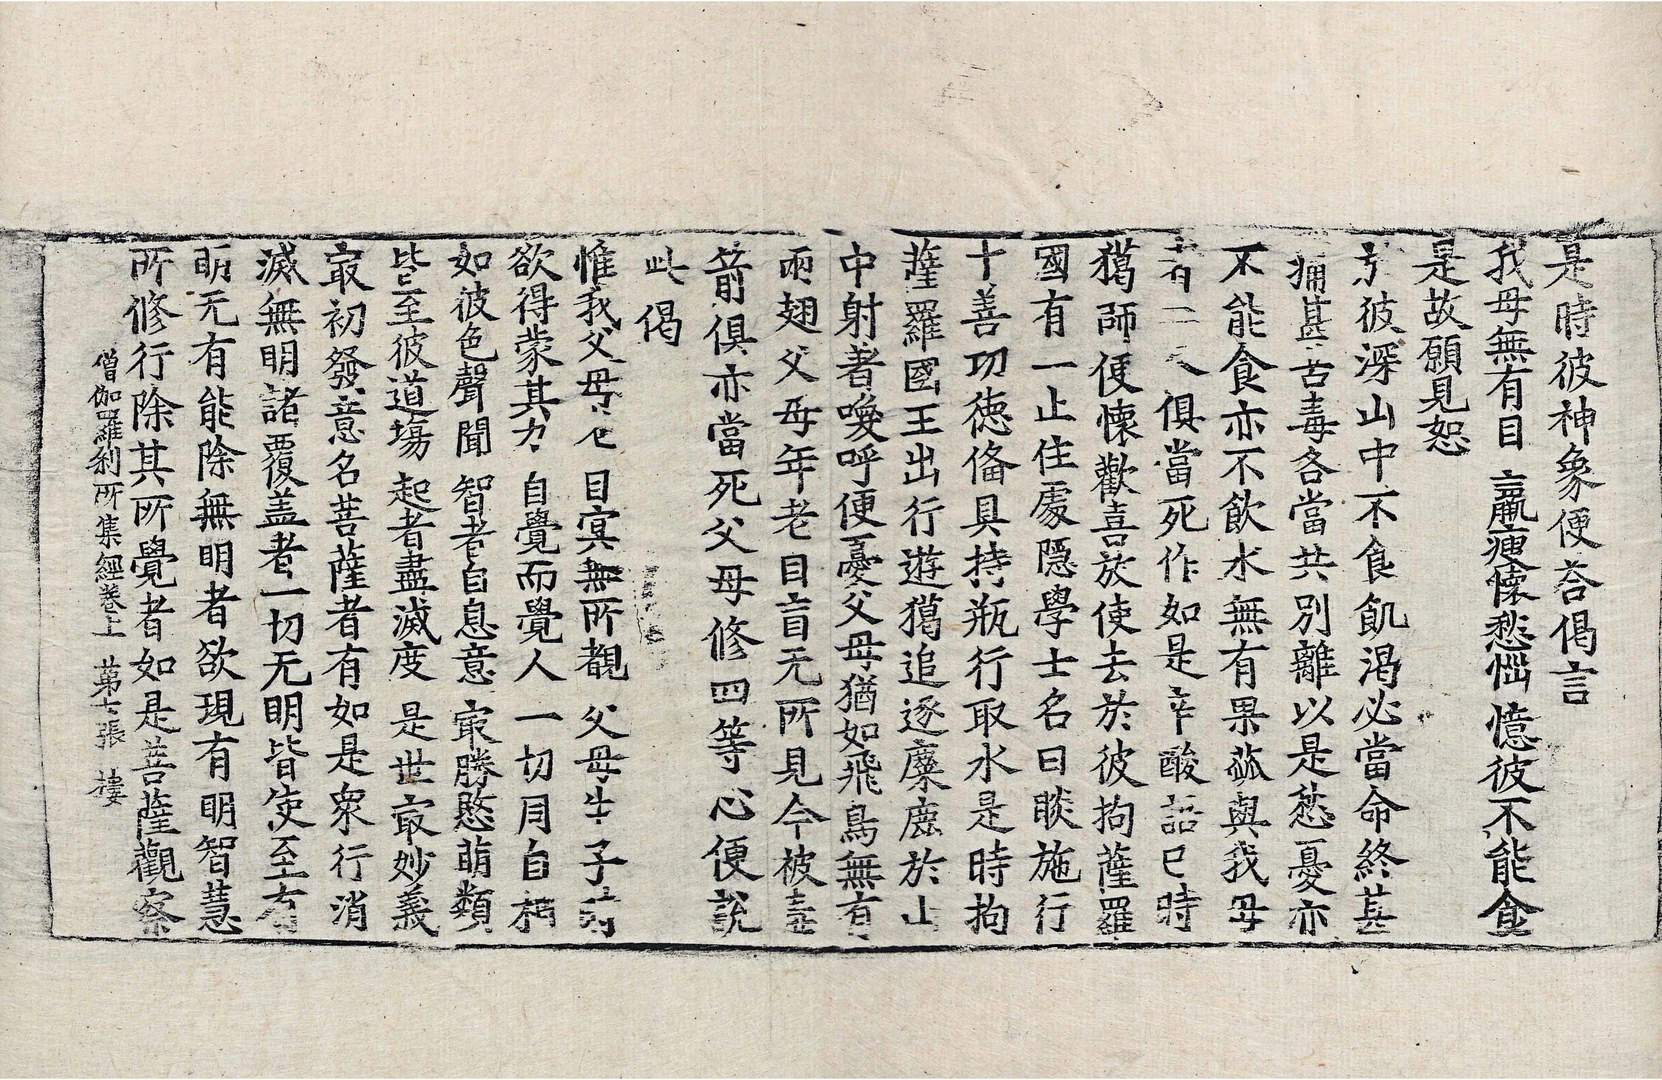 是時彼神象便荅偈言
我母無有目 羸瘦懷愁惱 憶彼不能食
是故願見恕
於彼深山中不食飢渴必當命終甚
痛甚苦毒各當共別離以是愁憂亦
不能食亦不飲水無有果蓏與我母
者二人俱當死作如是辛酸語已時
獦師便懷歡喜放使去於彼拘薩羅
國有一止住處隱學士名曰睒施行
十善功德俻具持瓶行取水是時拘
薩羅國王出行遊獦追逐麋鹿於山
中射著喚呼便憂父母猶如飛鳥無有
兩翅父母年老目盲无所見今被毒
箭俱亦當死父母修四等心便說
此偈
惟我父母老 目冥無所覩 父母生子時
欲得蒙其力 自覺而覺人 一切同自相
如彼色聲聞 智者自息意 㝡勝愍萌類
皆至彼道場 起者盡滅度 是世㝡妙義
㝡初發意名菩薩者有如是衆行消
滅無明諸覆盖者一切无明皆使至有
明无有能除無明者欲現有明智慧
所修行除其所覺者如是菩薩觀察
僧伽羅刹所集經卷上 苐七張 樓